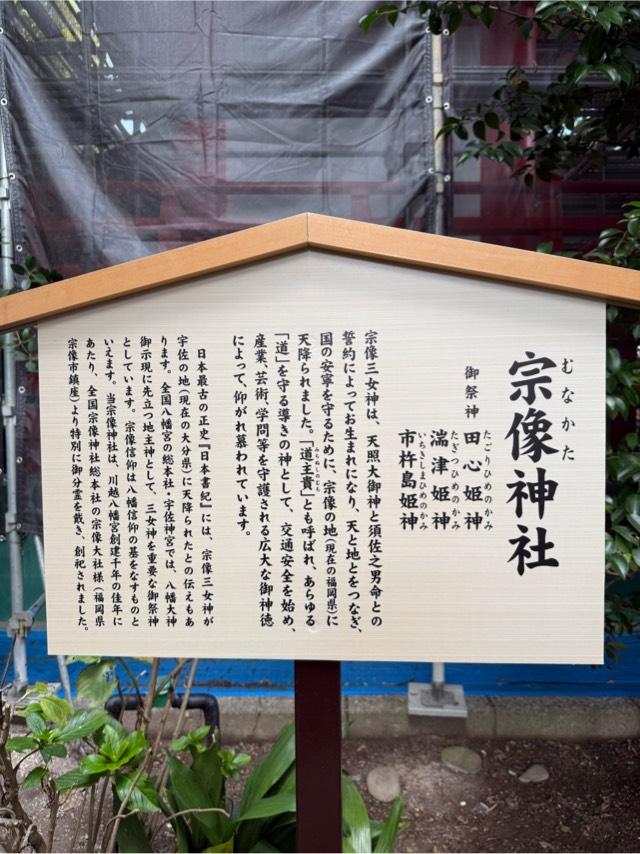 むなかた
宗像神社
御祭神
たごりひめのかみ
田心姫神
たぎつひめのかみ
湍津姫神
いちきしまひめのかみ
市杵島姫神
宗像三女神は、天照大御神と須佐之男命との
誓約によってお生まれになり、天と地とをつなぎ、
国の安寧を守るために、宗像の地(現在の福岡県)に
天降られました。「道主貴」とも呼ばれ、あらゆる
みちぬしのむち
「道」を守る導きの神として、交通安全を始め、
産業、芸術、学問等を守護される広大な御神徳
によって、仰がれ慕われています。
日本最古の正史『日本書紀』には、宗像三女神が
宇佐の地(現在の大分県)に天降られたとの伝えもあ
ります。全国八幡宮の総本社・宇佐神宮では、八幡大神
御示現に先立つ地主神として、三女神を重要な御祭神
としています。宗像信仰は八幡信仰の基をなすものと
いえます。当宗像神社は、川越八幡宮創建千年の佳年に
あたり、全国宗像神社総本社の宗像大社様(福岡県
宗像市鎮座)より特別に御分霊を戴き、創祀されました。